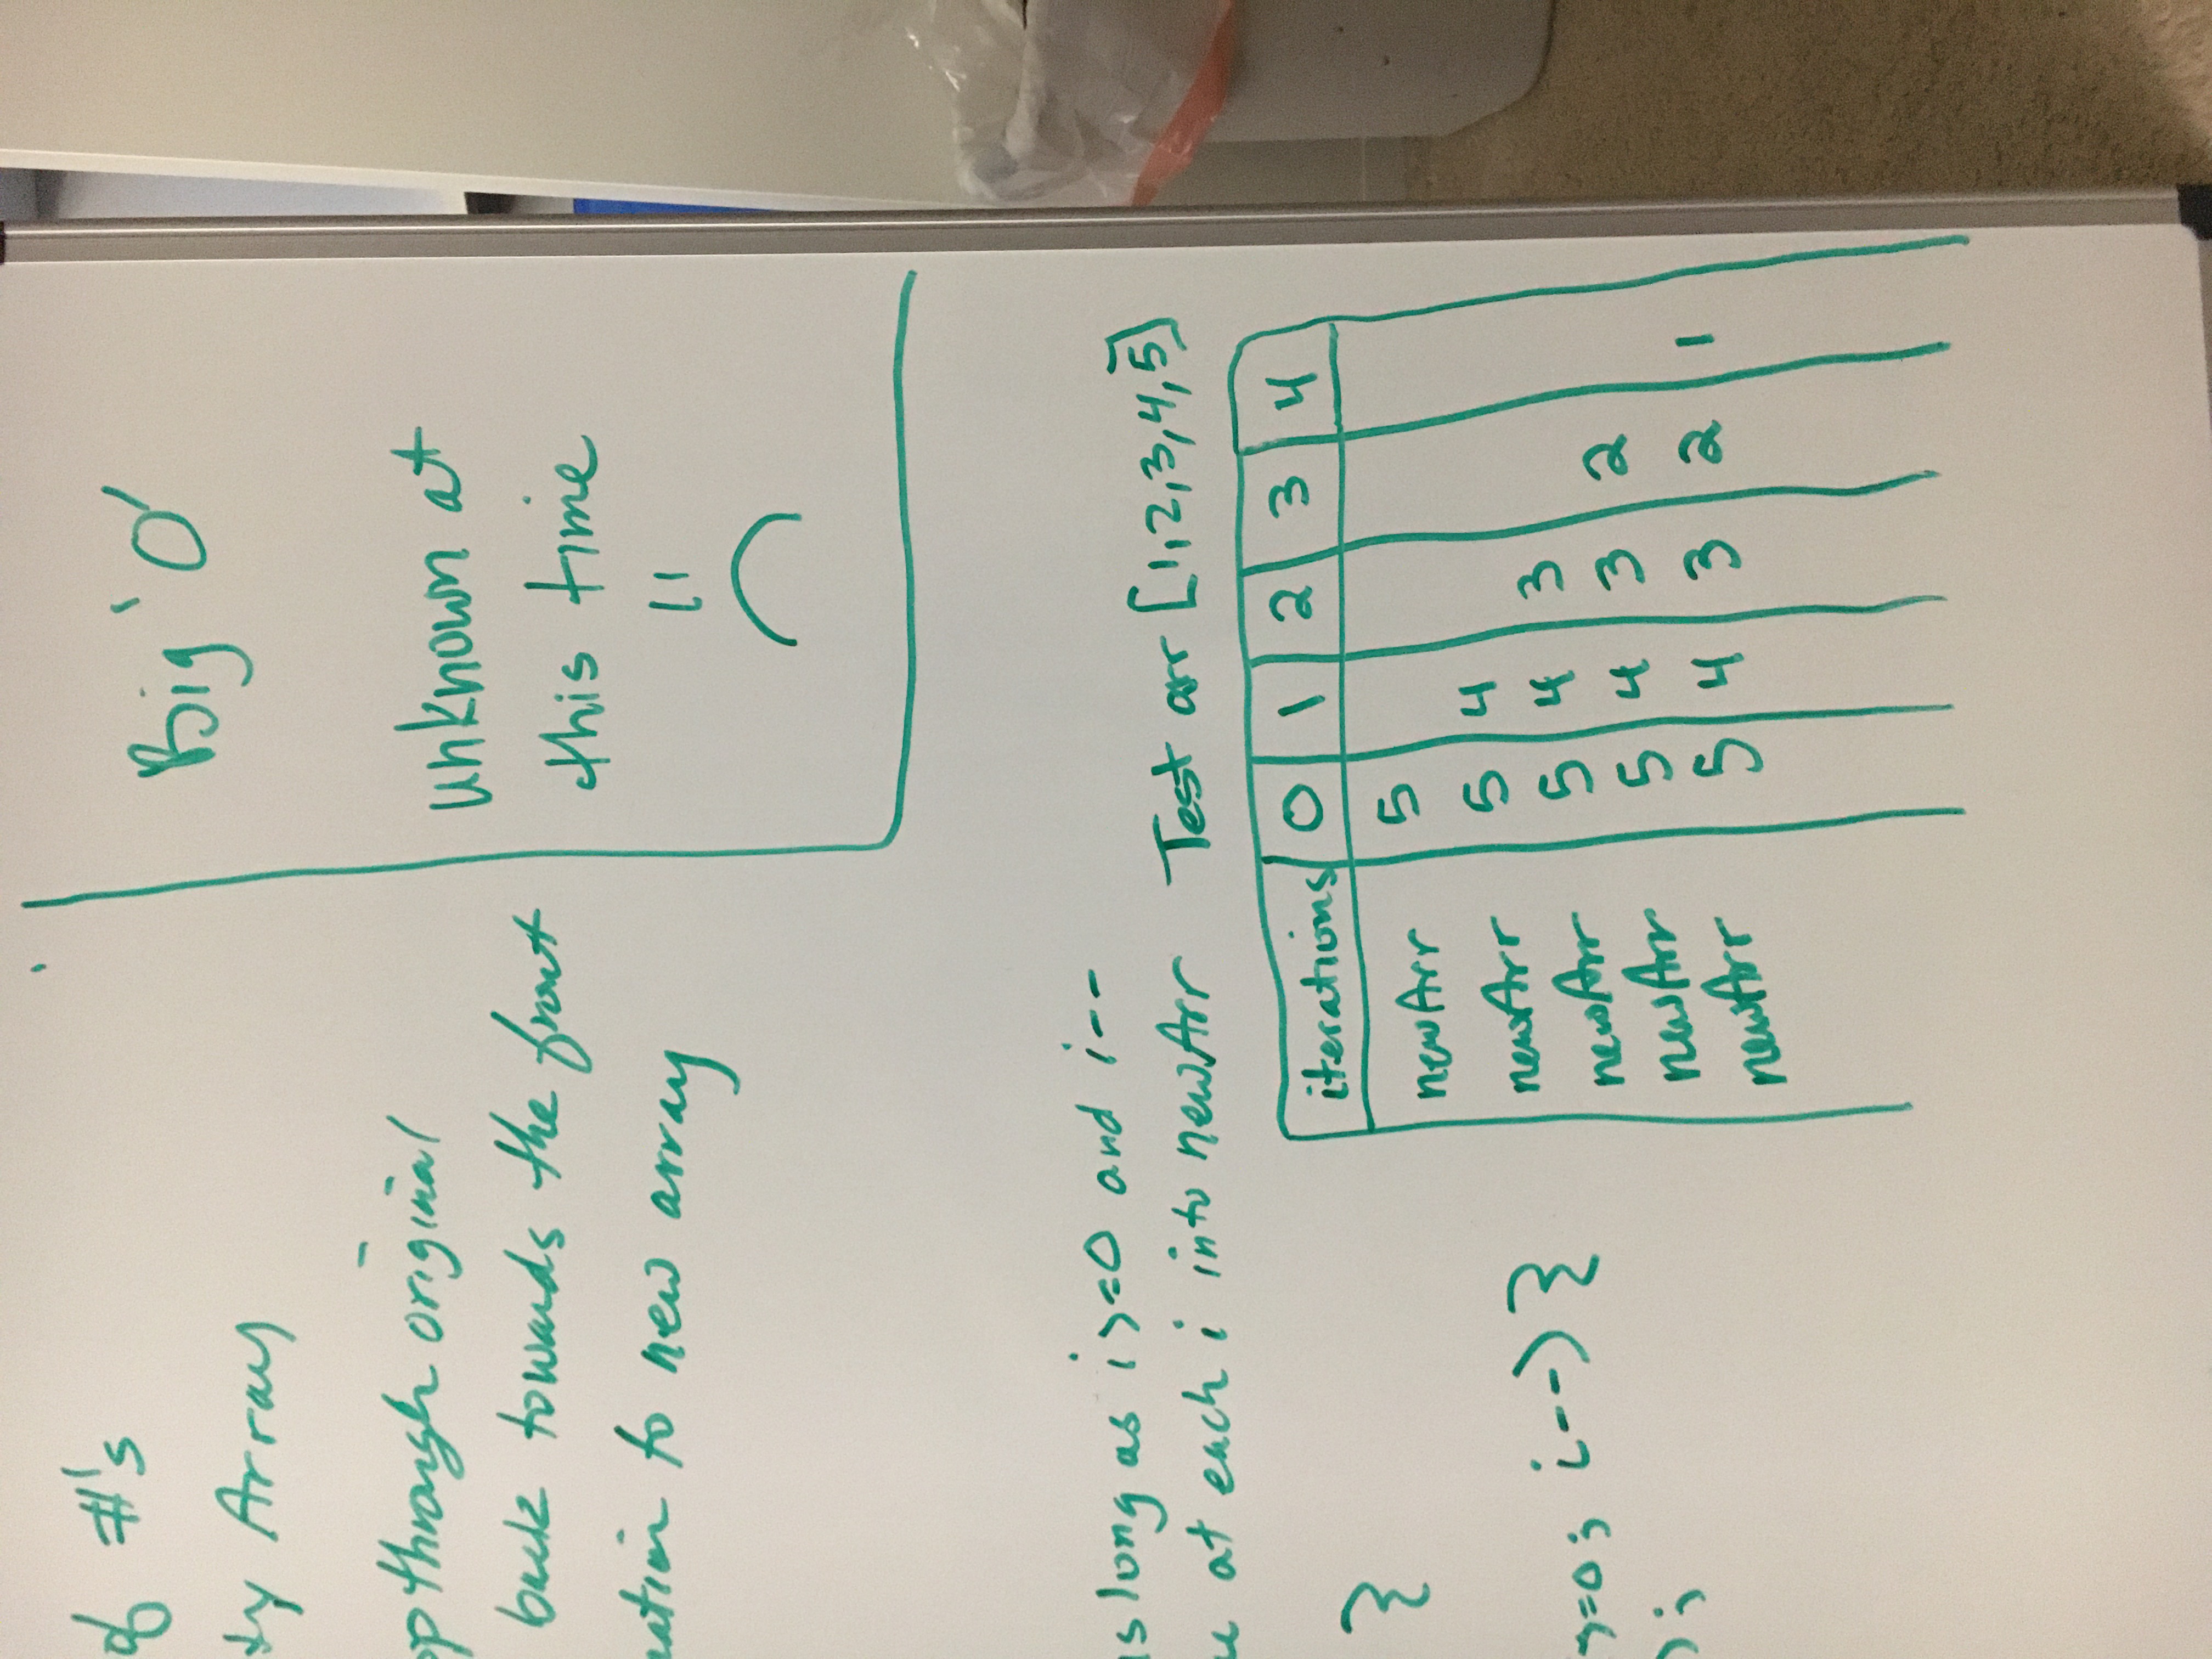 of #'s
ty Array
op through original
back towards the front
ation to new array
Big 'O'
unknown at
this time
is long as i>=0 and i--
at each i into newArr
}
>=0; i--) {
);
Test arr [1,2,3,4,5]
iterations 0 1 2 3 4
newArr 5
newArr 5 4
newArr 5 4 3
newArr 5 4 3 2
newArr 5 4 3 2 1